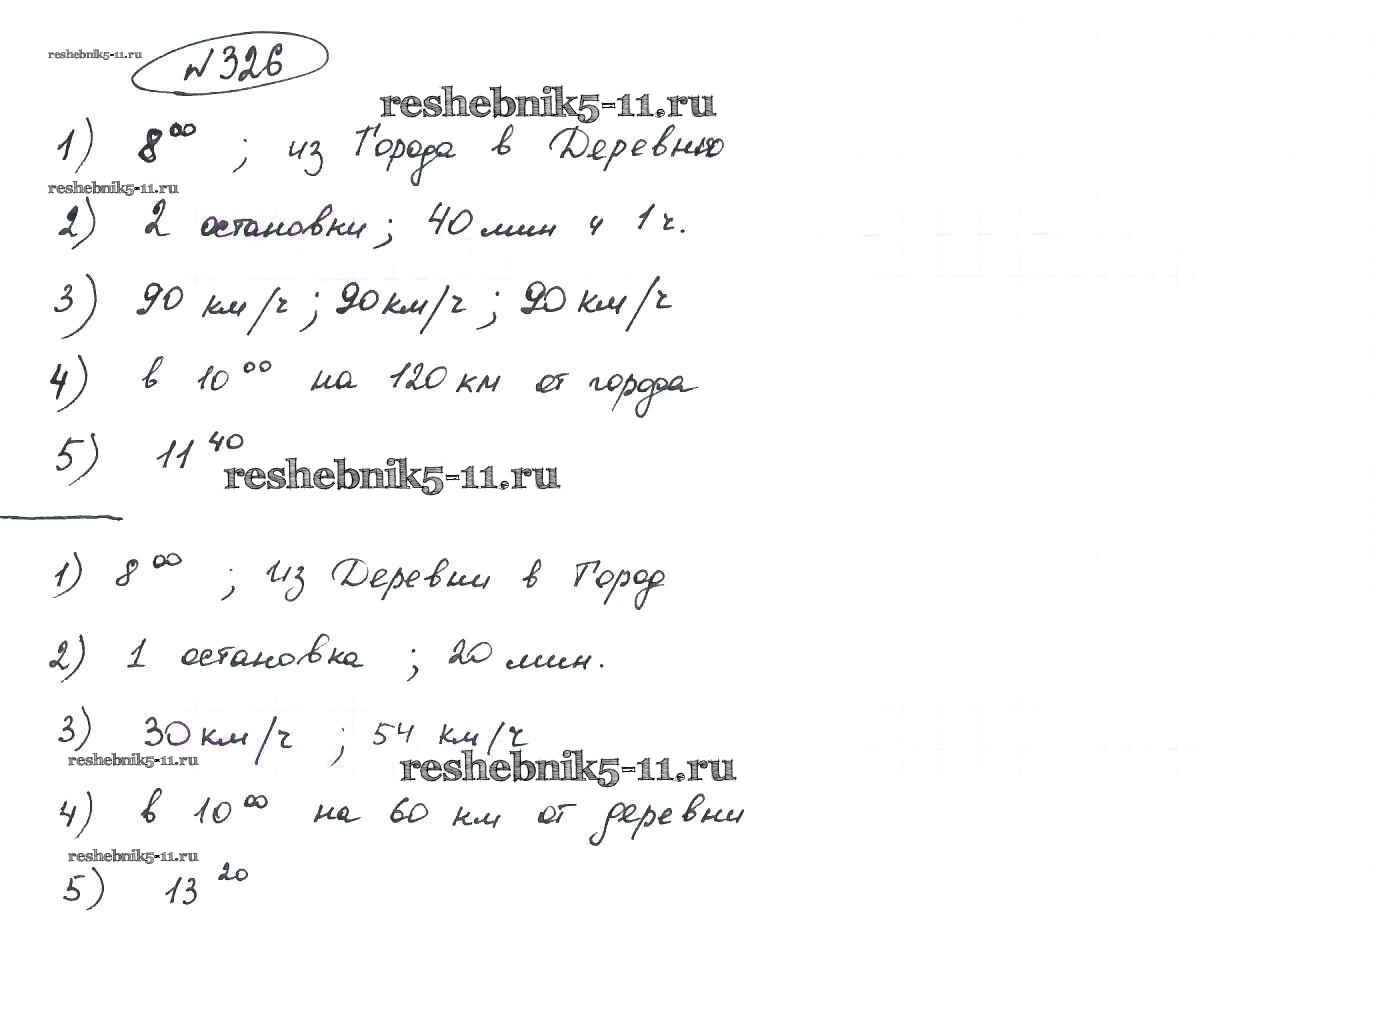 reshebnik5-11.ru
№326
reshebnik5-11.ru
1) 8⁰⁰ ; из Города в Деревню
reshebnik5-11.ru
2) 2 остановки; 40 мин и 1 ч.
3) 90 км/ч; 90 км/ч; 90 км/ч
4) в 10⁰⁰ на 120 км от города
5) 11⁴⁰
reshebnik5-11.ru
1) 8⁰⁰ ; из Деревни в Город
2) 1 остановка ; 20 мин.
3) 30 км/ч ; 54 км/ч
reshebnik5-11.ru
reshebnik5-11.ru
4) в 10⁰⁰ на 60 км от деревни
reshebnik5-11.ru
5) 13²⁰